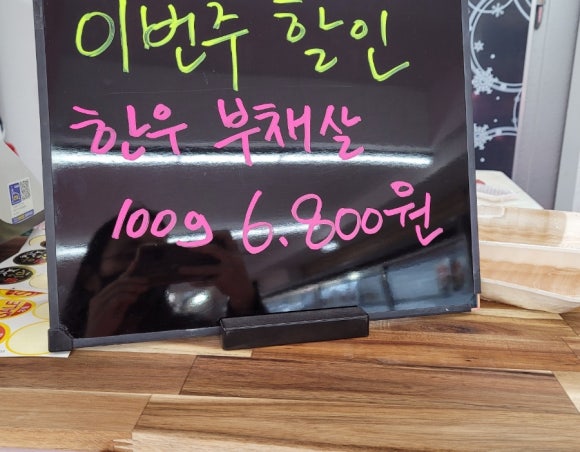 이번주 할인
한우 부채살
100g 6.800원